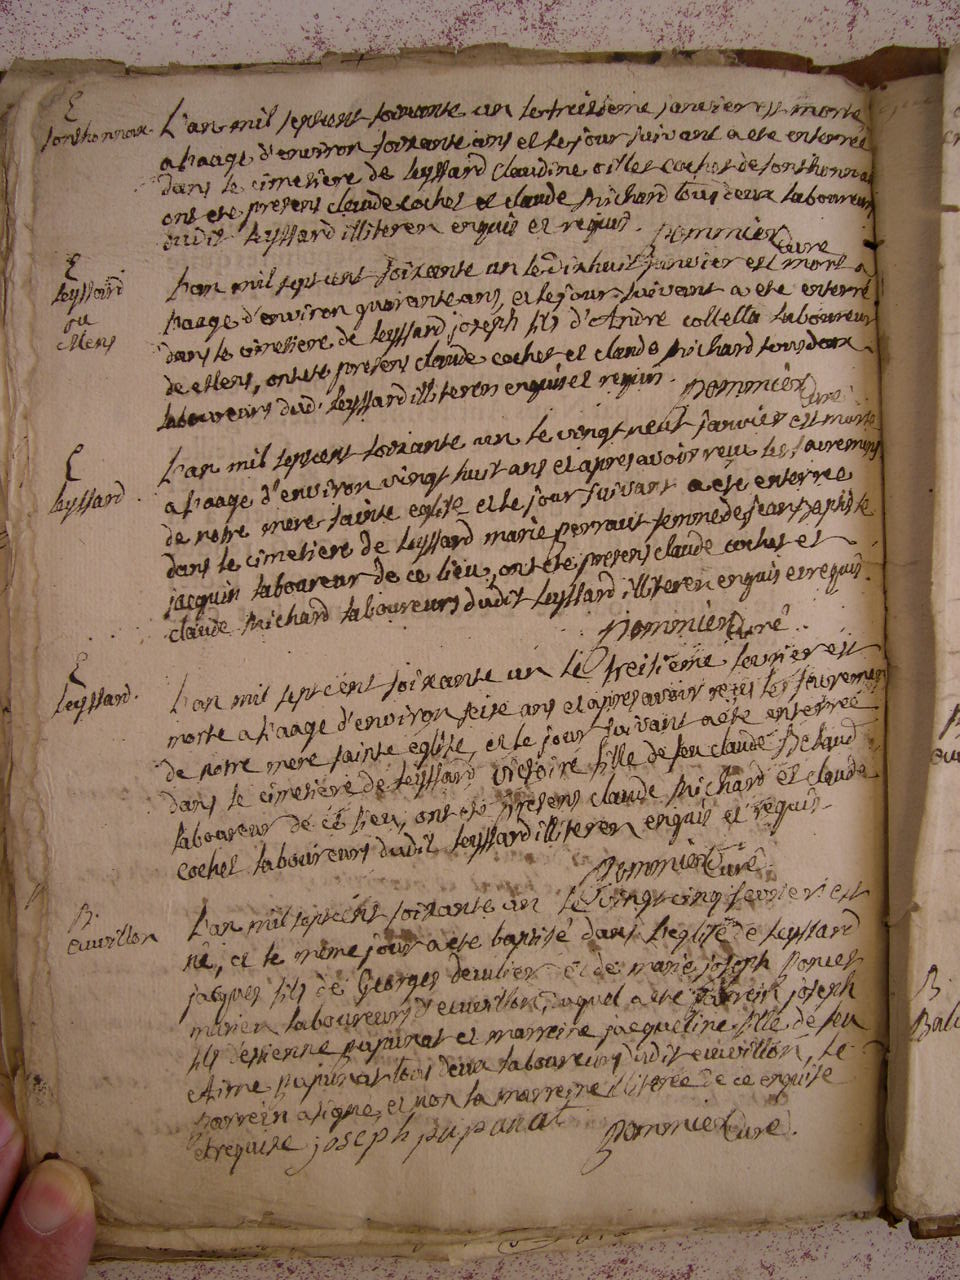 E
sonthonnax
L'an mil septcent soixante un le treisieme janvier est morte
a l'aage d'environ soixante ans et le jour suivant a ete enterrée
dans le cimetiere de leyssard claudine oillet cochet de sonthonnax
ont ete presens claude cochet et claude Michard tous deux laboureurs
dudit leyssard illiteren enquis et requis. Pommier Curé
E
leyssard
ou
Mens
L'an mil septcent soixante un le dixhuit janvier est mort a
l'aage d'environ quarante ans, et le jour suivant a ete enterré
dans le cimetiere de leyssard joseph fils d'André colletta laboureur
de Mens, ont ete presens claude cochet et claude Michard tous deux
laboureurs dud. leyssard illiteren enquis et requis. Pommier Curé
E
leyssard
L'an mil septcent soixante un le vingt neuf janvier est morte
a l'aage d'environ vingt huit ans et apres avoir reçu les sacremens
de notre mere sainte eglise et le jour suivant a ete enterrée
dans le cimetiere de leyssard marie perraut femme de jean Baptiste
jacquin laboureur de ce lieu, ont ete presens claude cochet et
claude Michard laboureurs dudit leyssard illiteren enquis et requis.
Pommier Curé
E
leyssard.
L'an mil septcent soixante un le treisieme fevrier est
morte a l'aage d'environ seise ans et apres avoir reçus les sacremens
de notre mere sainte eglise, et le jour suivant a ete enterrée
dans le cimetiere de leyssard victoire fille de feu claude
laboureur de ce lieu, ont ete presens claude Michard et claude
cochet laboureurs dudit leyssard illiteren enquis et requis.
Pommier Curé.
B.
euvillon
L'an mil septcent soixante un le vingt cinq fevrier est
né, et le meme jour a ete baptisé dans l'eglise de leyssard
jacques fils de Georges et de marie joseph
laboureurs d'euvillon, auquel a ete parrein joseph
fils d'estienne papunat et marreine jacqueline fille de feu
Aime papunat tous deux laboureurs dudit euvillon, le
parrein a signé, et non la marreine illiterée de ce enquise
et requise joseph papunat Pommier Curé.